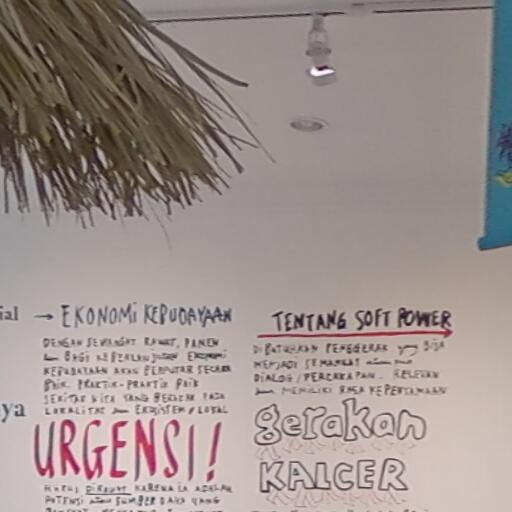 ial → EKONOMi KEBUDAYAAN
DENGAN SEMANGAT RAWAT, PANEN
dan BAGI KEBERLANJUTAN EKONOMI
KEBUDAYAAN AKAN BERPUTAR SECARA
BAIK. PRAKTIK-PRAKTIK BAIK
SEKITAR KITA YANG BERAKAR PADA
ya LOKALITAS dan EKOSISTEM / LOKAL
URGENSI!
HARUS DIRAWAT KARENA IA ADALAH
POTENSI atau SUMBER DAYA YANG
TENTANG SOFT POWER
DIBUTUHKAN PENGGERAK yang BISA
MENJADI SEMANGAT
DIALOG / PERCAKAPAN. RELEVAN
dan MEMILIKI RASA KEPERCAYAAN
gerakan
KALCER